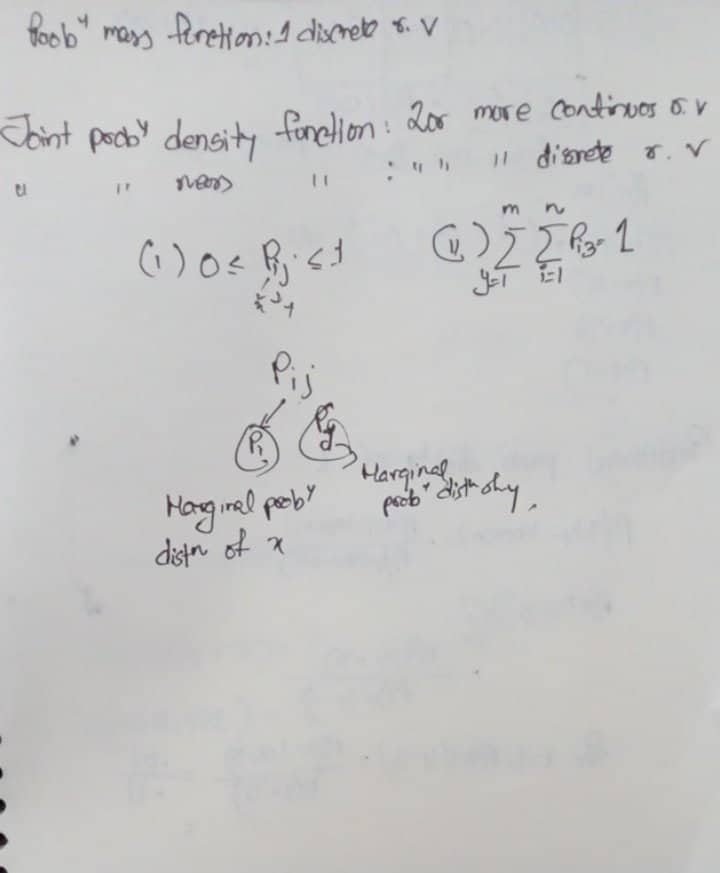 Prob^y mass function: 1 discrete r. v
Joint prob^y density function: 2 or more continuos r. v
" " mass " : " " " discrete r. v
(i) 0 ≤ P_ij ≤ 1
x y
(ii) m Σ y=1 n Σ i=1 P_ij = 1
P_ij
P_i P_j
Marginal prob^y distn of x
Marginal prob^y distn of y.